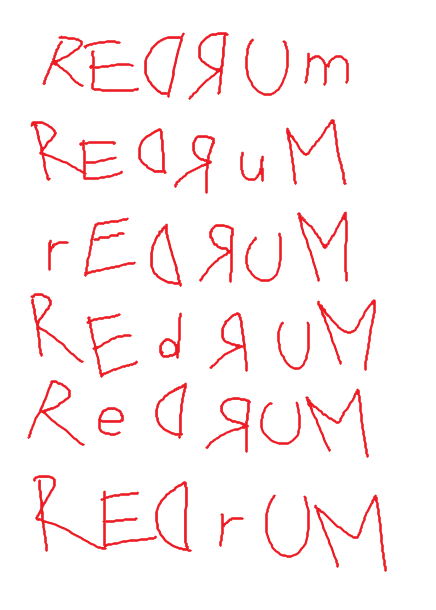 REDЯUm
REDЯuM
rEDЯUM
REdЯUM
ReDЯUM
REDrUM